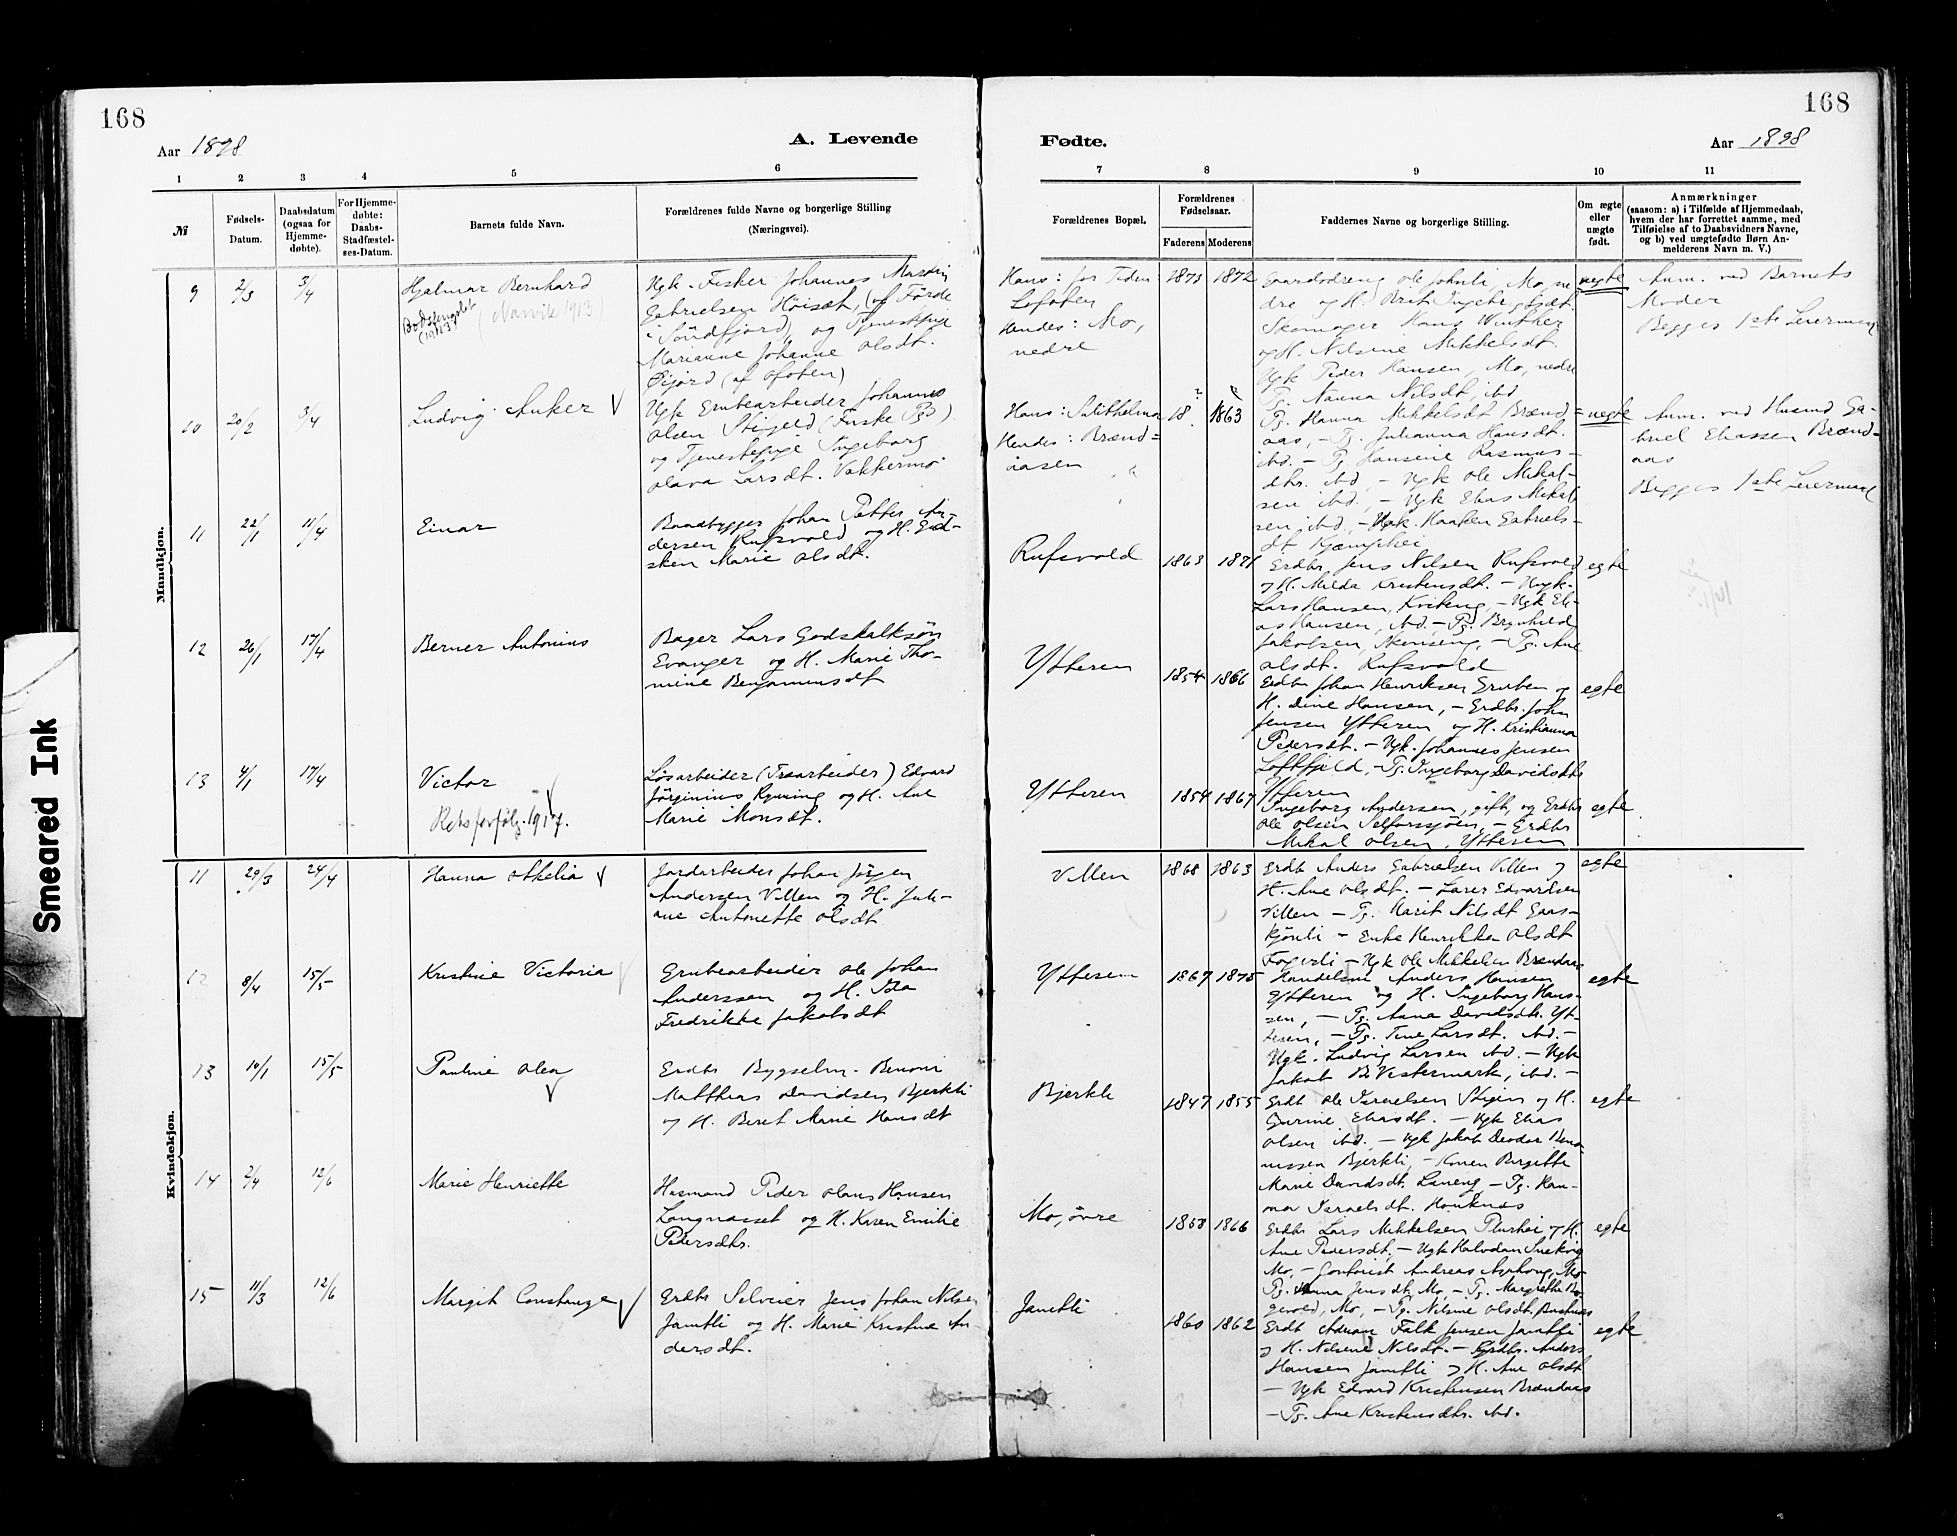 168
168
Aar 1898
A. Levende
Fødte.
Aar 1898
1 2 3 4 5 6
7 8 9 10 11
№
Fødsels-
Datum.
Daabsdatum
(ogsaa for
Hjemme-
døbte).
For Hjemme-
døbte:
Daabs-
Stadfæstel-
ses-Datum.
Barnets fulde Navn.
Forældrenes fulde Navne og borgerlige Stilling
(Næringsvei).
Forældrenes Bopæl.
Forældrenes
Fødselsaar.
Faderens Moderens
Faddernes Navne og borgerlige Stilling.
Om ægte
eller
uægte
født.
Anmærkninger
(saasom: a) i Tilfælde af Hjemmedaab,
hvem der har forrettet samme, med
Tilføielse af to Daabsvidners Navne,
og b) ved uægtefødte Børn An-
melderens Navn m. V.)
Mandkjøn.
9 2/3 3/4
Hjalmar Bernhard
(Narvik 1913)
Ugk. Fisker Johannes Martin
Gabrielsen Höisæt, (af Förde
i Söndfjord), og Tjenestepige
Marianne Johanne Olsdt.
(af Ofoten)
Hans: for Tiden
Lofoten
Hendes: Mo,
nedre
1873 1872
Gaardsdreng Ole Johnli, Mo, ne-
dre og H. Brit Ingebrigtsdt.
Skomager Hans Winther
og H. Nilsine Mikkelsdt.
Ugk Peder Hansen, Mo, nedre
Pg. Nanna Nilsdt, ibd
uegte
Anm. ved Barnets
Moder
Begges 1ste Leiermaal
10 20/2 3/4
Ludvig Anker
Ugk Grubearbeider Johannes
Olsen
og Tjenestepige Ingeborg
Olava Larsdt. Vakkermo
Hans: Sulithelma
Hendes: Brænd=
aasen
18 ? 1863
Pg. Hanna Mikkelsdt Brænd=
aas, - Pg. Julianna Hansdt.
ibd. - Pg. Hansine Rasmus-
dtr. ibd, - Ugk Ole Mikal-
sen ibd, - Ugk Elias Mikal
sen, ibd, - Ugk. Haagen Gabriels-
uegte
Anm. ved Husmd Ga-
briel Eliassen Brænd-
aas
Begges 1ste Leiermaal
11 22/1 11/4
Einar
Baadbygger Johan Petter An-
dersen Rufsvold og H. Gud-
sken Marie Olsdt.
Rufsvold
1863 1871
Grdbr Jens Nilsen Rufsvold
og H. Milda Kristensdt. - Ugk.
Lars Hansen, - Ugk Eli-
as Hansen, ibd. - Pg. Brynhild
Jakobsen, - Pg. Ane
Olsdt. Rufsvold
egte
12 26/1 17/4
Berner Antonius
Bager Lars Godskalksön
Evanger og H. Marie Tho-
mine Benjaminsdt
Ytteren
1854 1866
Grdbr Johan Henriksen Gruben og
H. Dine Hansen, - Grdbr. John
Jensen Ytteren og H. Kristianna
Pedersdt. - Ugk. Johannes Jensen
Loftfjeld, - Pg. Ingeborg Davidsdtr
Ytteren
egte
13 4/1 17/4
Victor
Retsforfölg. 1917.
Lösarbeider (Træarbeider) Edvard
Jörginius og H. Ane
Marie Monsdt.
Ytteren
1854 1867
Ingeborg Andersen, gift, og Grdbr
Ole Olsen Selforssjøen, - Grdbr
Mikal Olsen, Ytteren
egte
Kvindekjøn.
11 29/3 24/4
Hanna Othelia
Jordarbeider Johan Jörgen
Andersen Villen og H. Juli-
ane Antonette Olsdt
Villen
1868 1863
Grdbr Anders Gabrielsen Villen og
H. Ane Olsdt. - Lærer Edvardsen
Villen - Pg. Marit Nilsdt Gaas-
kjönli - Enke Henrikka Olsdt
Fagerli - Ugk Ole Mikkelsen Brændaas
egte
12 8/4 15/5
Kristine Victoria
Grubearbeider Ole Johan
Anderssen og H. Ida
Fredrikke Jakobsdt
Ytteren
1867 1875
Handelsm Anders Hansen
Ytteren og H. Ingeborg Hans-
sen, - Pg. Anna Davidsdtr. Yt-
teren, - Pg. Tine Larsdt. ibd. -
Ugk. Ludvig Larsen ibd. - Ugk
Jakob B. Vestermark, ibd. -
egte
13 10/1 15/5
Pauline Olea
Grdbr Bygselm. Benoni
Matthias Davidsen Bjerkli
og H. Beret Marie Hansdt
Bjerkli
1847 1855
Grdbr Ole Israelsen Stigen og H.
Gurine Eliasdt. - Ugk Elias
Olsen ibd. - Ugk Jakob Deodor Beno-
nissen Bjerkli, - Konen Bergitte
Marie Davidsdt. - Pg. Han-
na Israelsdt.
egte
14 2/4 12/6
Marie Henriette
Husmand Peder Olaus Hansen
Langnæsset og H. Karen Emilie
Pedersdtr.
Mo, övre
1858 1866
Grdbr Lars Mikkelsen og H.
Ane Pedersdt, - Ugk Halvdan
Mo, - Andreas Mo
Pg. Anna Jensdt, Mo, - Pg. Margrethe
Mo, - Pg. Nilsine Olsdt.
egte
15 11/3 12/6
Margit Constanze
Grdbr Selveier Jens Johan Nilsen
Jamtli og H. Marie Kristine An
dersdt.
Jamtli
1860 1862
Grdbr Adrian Falk Jensen Jamtli
og H. Nilsine Nilsdt. - Grdbr. Anders
Hansen Jamtli og H. Ane Olsdt
- Ugk Edvard Kristensen Brændaas
- Pg. Ane Kristensdtr. ibd.
egte
Smeared Ink